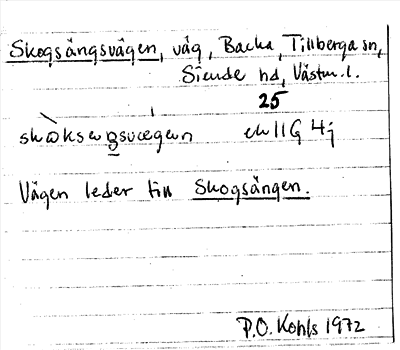 Skogsängsvägen, väg, Backa, Tillberga sn,
Siende hd, Västm. l.
25
skωksεŋsvεgεn ek 11G 4j
Vägen leder till Skogsängen.
P.O. Kohls 1972